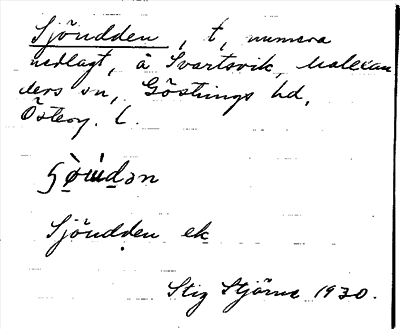 Sjöudden, t, numera
nedlagt, å Svartsvik, Malexan
ders sn, Göstrings hd,
Österg. l.
Sjöudden ek
Stig Stjärne 1930.